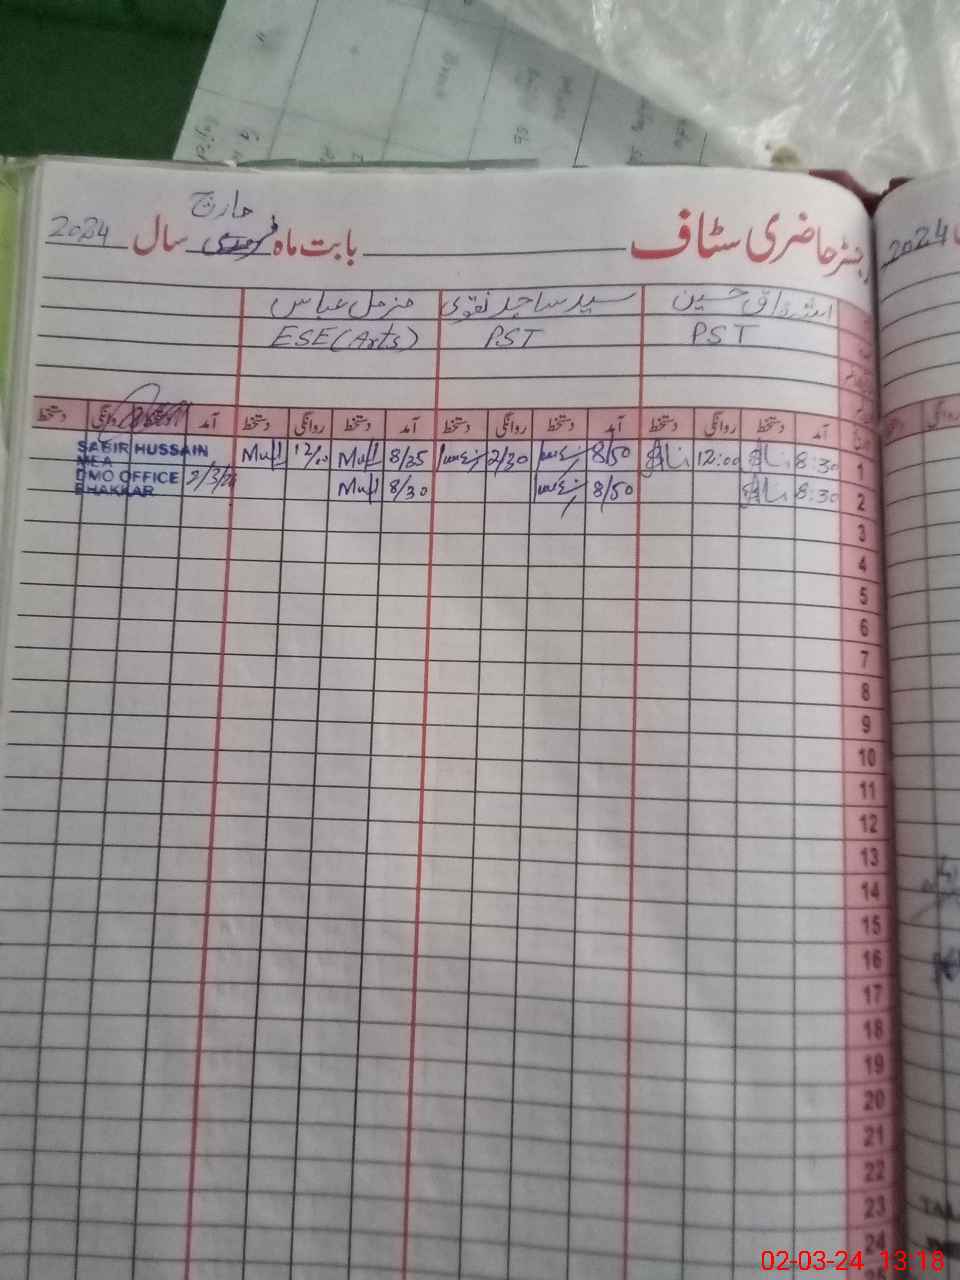 رجسٹر حاضری سٹاف بابت ماہ فروری مارچ سال 2024
2024
اشفاق حسین سید ساجد نقوی مزمل عباس
PST PST ESE (Arts)
آمد دستخط روانگی دستخط آمد دستخط روانگی دستخط آمد دستخط روانگی دستخط آمد روانگی دستخط
1 8:30 12:00 8/50 2/30 8/25 12/00
2 8:30 8/50 8/30
SABIR HUSSAIN
MEA
DMO OFFICE 2/3/24
BHAKKAR
3
4
5
6
7
8
9
10
11
12
13
14
15
16
17
18
19
20
21
22
23
24
02-03-24 13:18